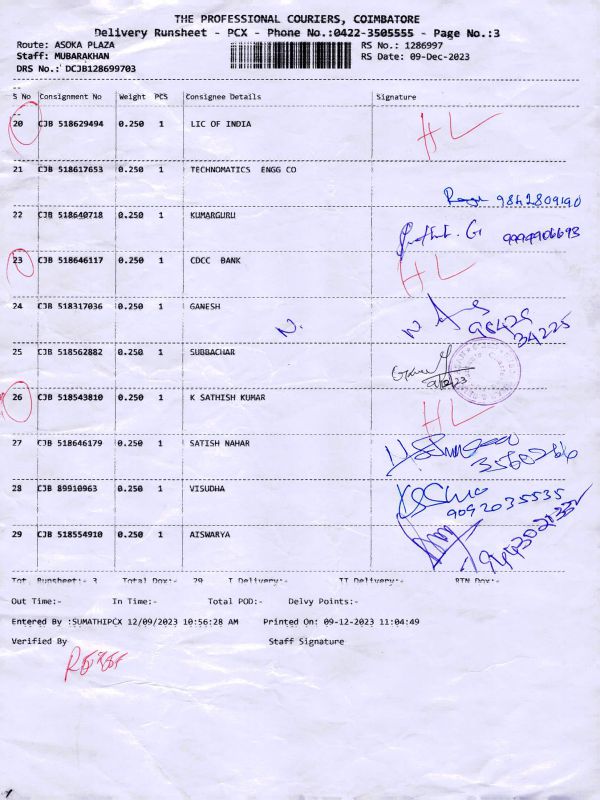 THE PROFESSIONAL COURIERS, COIMBATORE
Delivery Runsheet - PCX - Phone No.:0422-3505555 - Page No.:3
Route: ASOKA PLAZA RS No.: 1286997
Staff: MUBARAKHAN RS Date: 09-Dec-2023
DRS No.: DCJB128699703
S No Consignment No Weight PCS Consignee Details Signature
20 CJB 518629494 0.250 1 LIC OF INDIA HL
21 CJB 518617653 0.250 1 TECHNOMATICS ENGG CO
9842809190
22 CJB 518640718 0.250 1 KUMARGURU
23 CJB 518646117 0.250 1 CDCC BANK HL
24 CJB 518317036 0.250 1 GANESH
N. 98429
34225
25 CJB 518562882 0.250 1 SUBBACHAR
26 CJB 518543810 0.250 1 K SATHISH KUMAR HL
27 CJB 518646179 0.250 1 SATISH NAHAR
28 CJB 89910963 0.250 1 VISUDHA
9092035535
29 CJB 518554910 0.250 1 AISWARYA
Tot. Runsheet:- 3 Total Dox:- 29 T Delivery:- TT Delivery:- RTN Dox:-
Out Time:- In Time:- Total POD:- Delvy Points:-
Entered By :SUMATHIPCX 12/09/2023 10:56:28 AM Printed On: 09-12-2023 11:04:49
Verified By Staff Signature